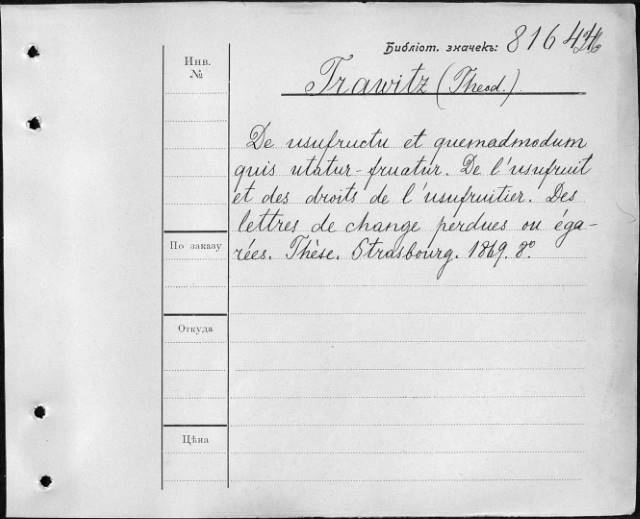 Библіот. значекъ: 8164
Инв.
№
Trawitz (Theod.)
De usufructu et quemadmodum
quis utatur-fruatur. De l'usufruit
et des droits de l'usufruitier. Des
lettres de change perdues ou éga-
rées. Thèse. Strasbourg. 1869. 8º.
По заказу
Откуда
Цѣна